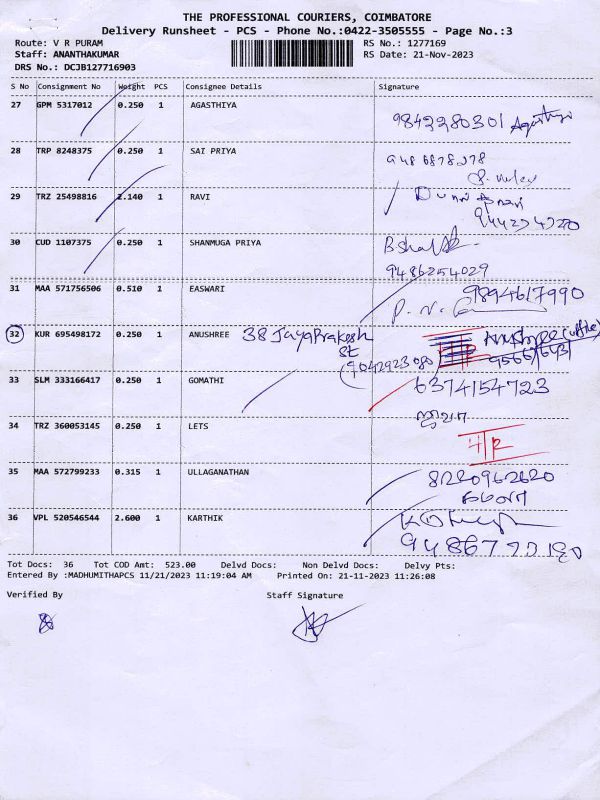 THE PROFESSIONAL COURIERS, COIMBATORE
Delivery Runsheet - PCS - Phone No.:0422-3505555 - Page No.:3
Route: V R PURAM RS No.: 1277169
Staff: ANANTHAKUMAR RS Date: 21-Nov-2023
DRS No.: DCJB127716903
S No Consignment No Weight PCS Consignee Details Signature
27 GPM 5317012 0.250 1 AGASTHIYA
9842280301
28 TRP 8248375 0.250 1 SAI PRIYA
29 TRZ 25498816 2.140 1 RAVI
30 CUD 1107375 0.250 1 SHANMUGA PRIYA
9486254029
31 MAA 571756506 0.510 1 EASWARI
9894617990
32 KUR 695498172 0.250 1 ANUSHREE 38 JayaPrakesh
St
9042923080
33 SLM 333166417 0.250 1 GOMATHI
6374154723
34 TRZ 360053145 0.250 1 LETS
35 MAA 572799233 0.315 1 ULLAGANATHAN
8220962620
36 VPL 520546544 2.600 1 KARTHIK
Tot Docs: 36 Tot COD Amt: 523.00 Delvd Docs: Non Delvd Docs: Delvy Pts:
Entered By :MADHUMITHAPCS 11/21/2023 11:19:04 AM Printed On: 21-11-2023 11:26:08
Verified By Staff Signature